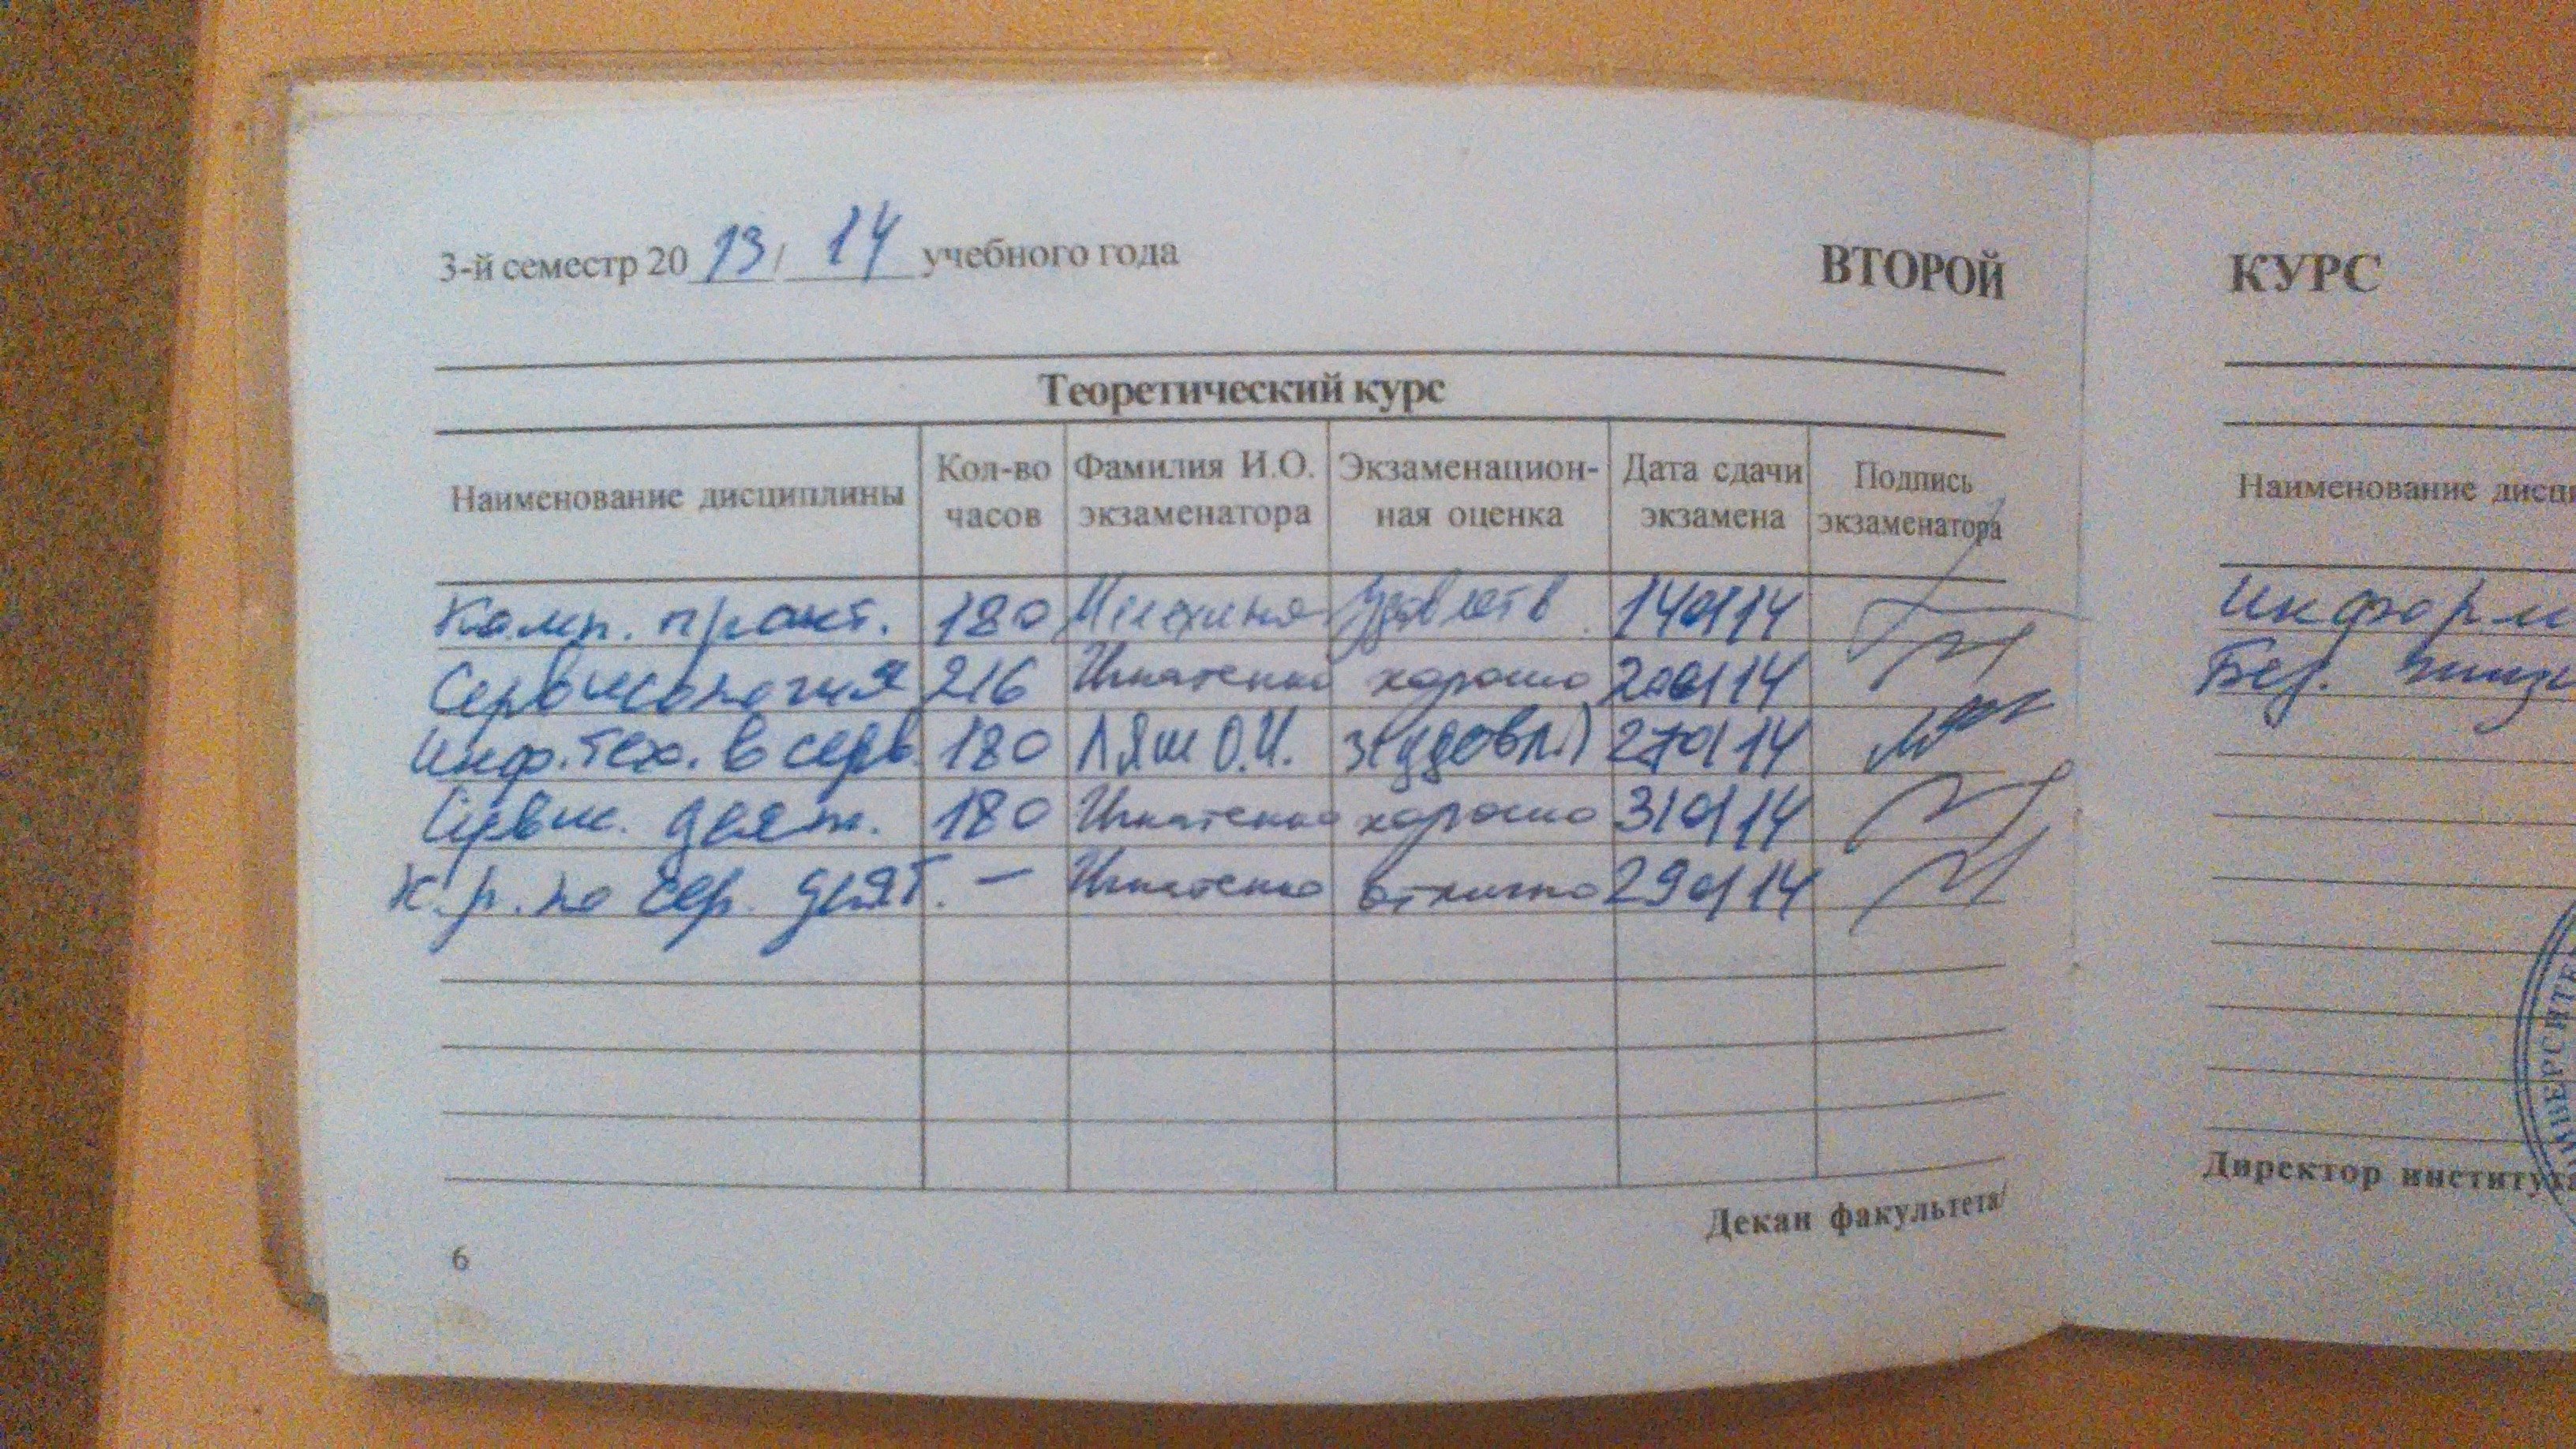 3-й семестр 20 13 / 14 учебного года
ВТОРОЙ
Теоретический курс
Наименование дисциплины Кол-во часов Фамилия И.О. экзаменатора Экзаменацион-ная оценка Дата сдачи экзамена Подпись экзаменатора
Комп. практ. 180 удовлетв 140114
Сервисология 216 Игнатенко хорошо 200114
Инф. тех. в серв. 180 Ляш О.И. 3(удовл) 270114
Сервис. деят. 180 Игнатенко хорошо 310114
К.р. по сер. деят. — Игнатенко отлично 290114
Декан факультета/
6
КУРС
Наименование дисци
Информ
Без. жизн
Директор института